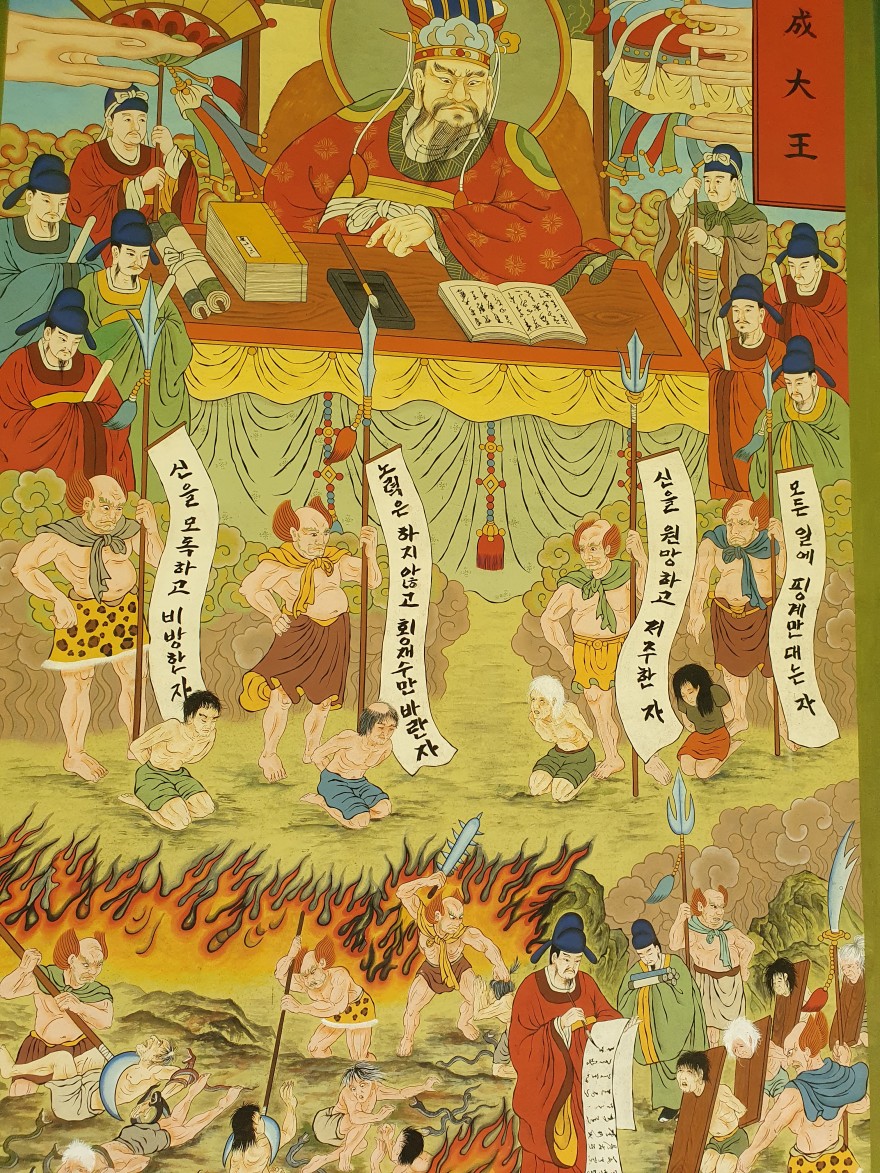 成大王
신을 모독하고 비방한 자
노력은 하지않고 횡재수만 바란자
신을 원망하고 저주한 자
모든 일에 핑계만 대는 자